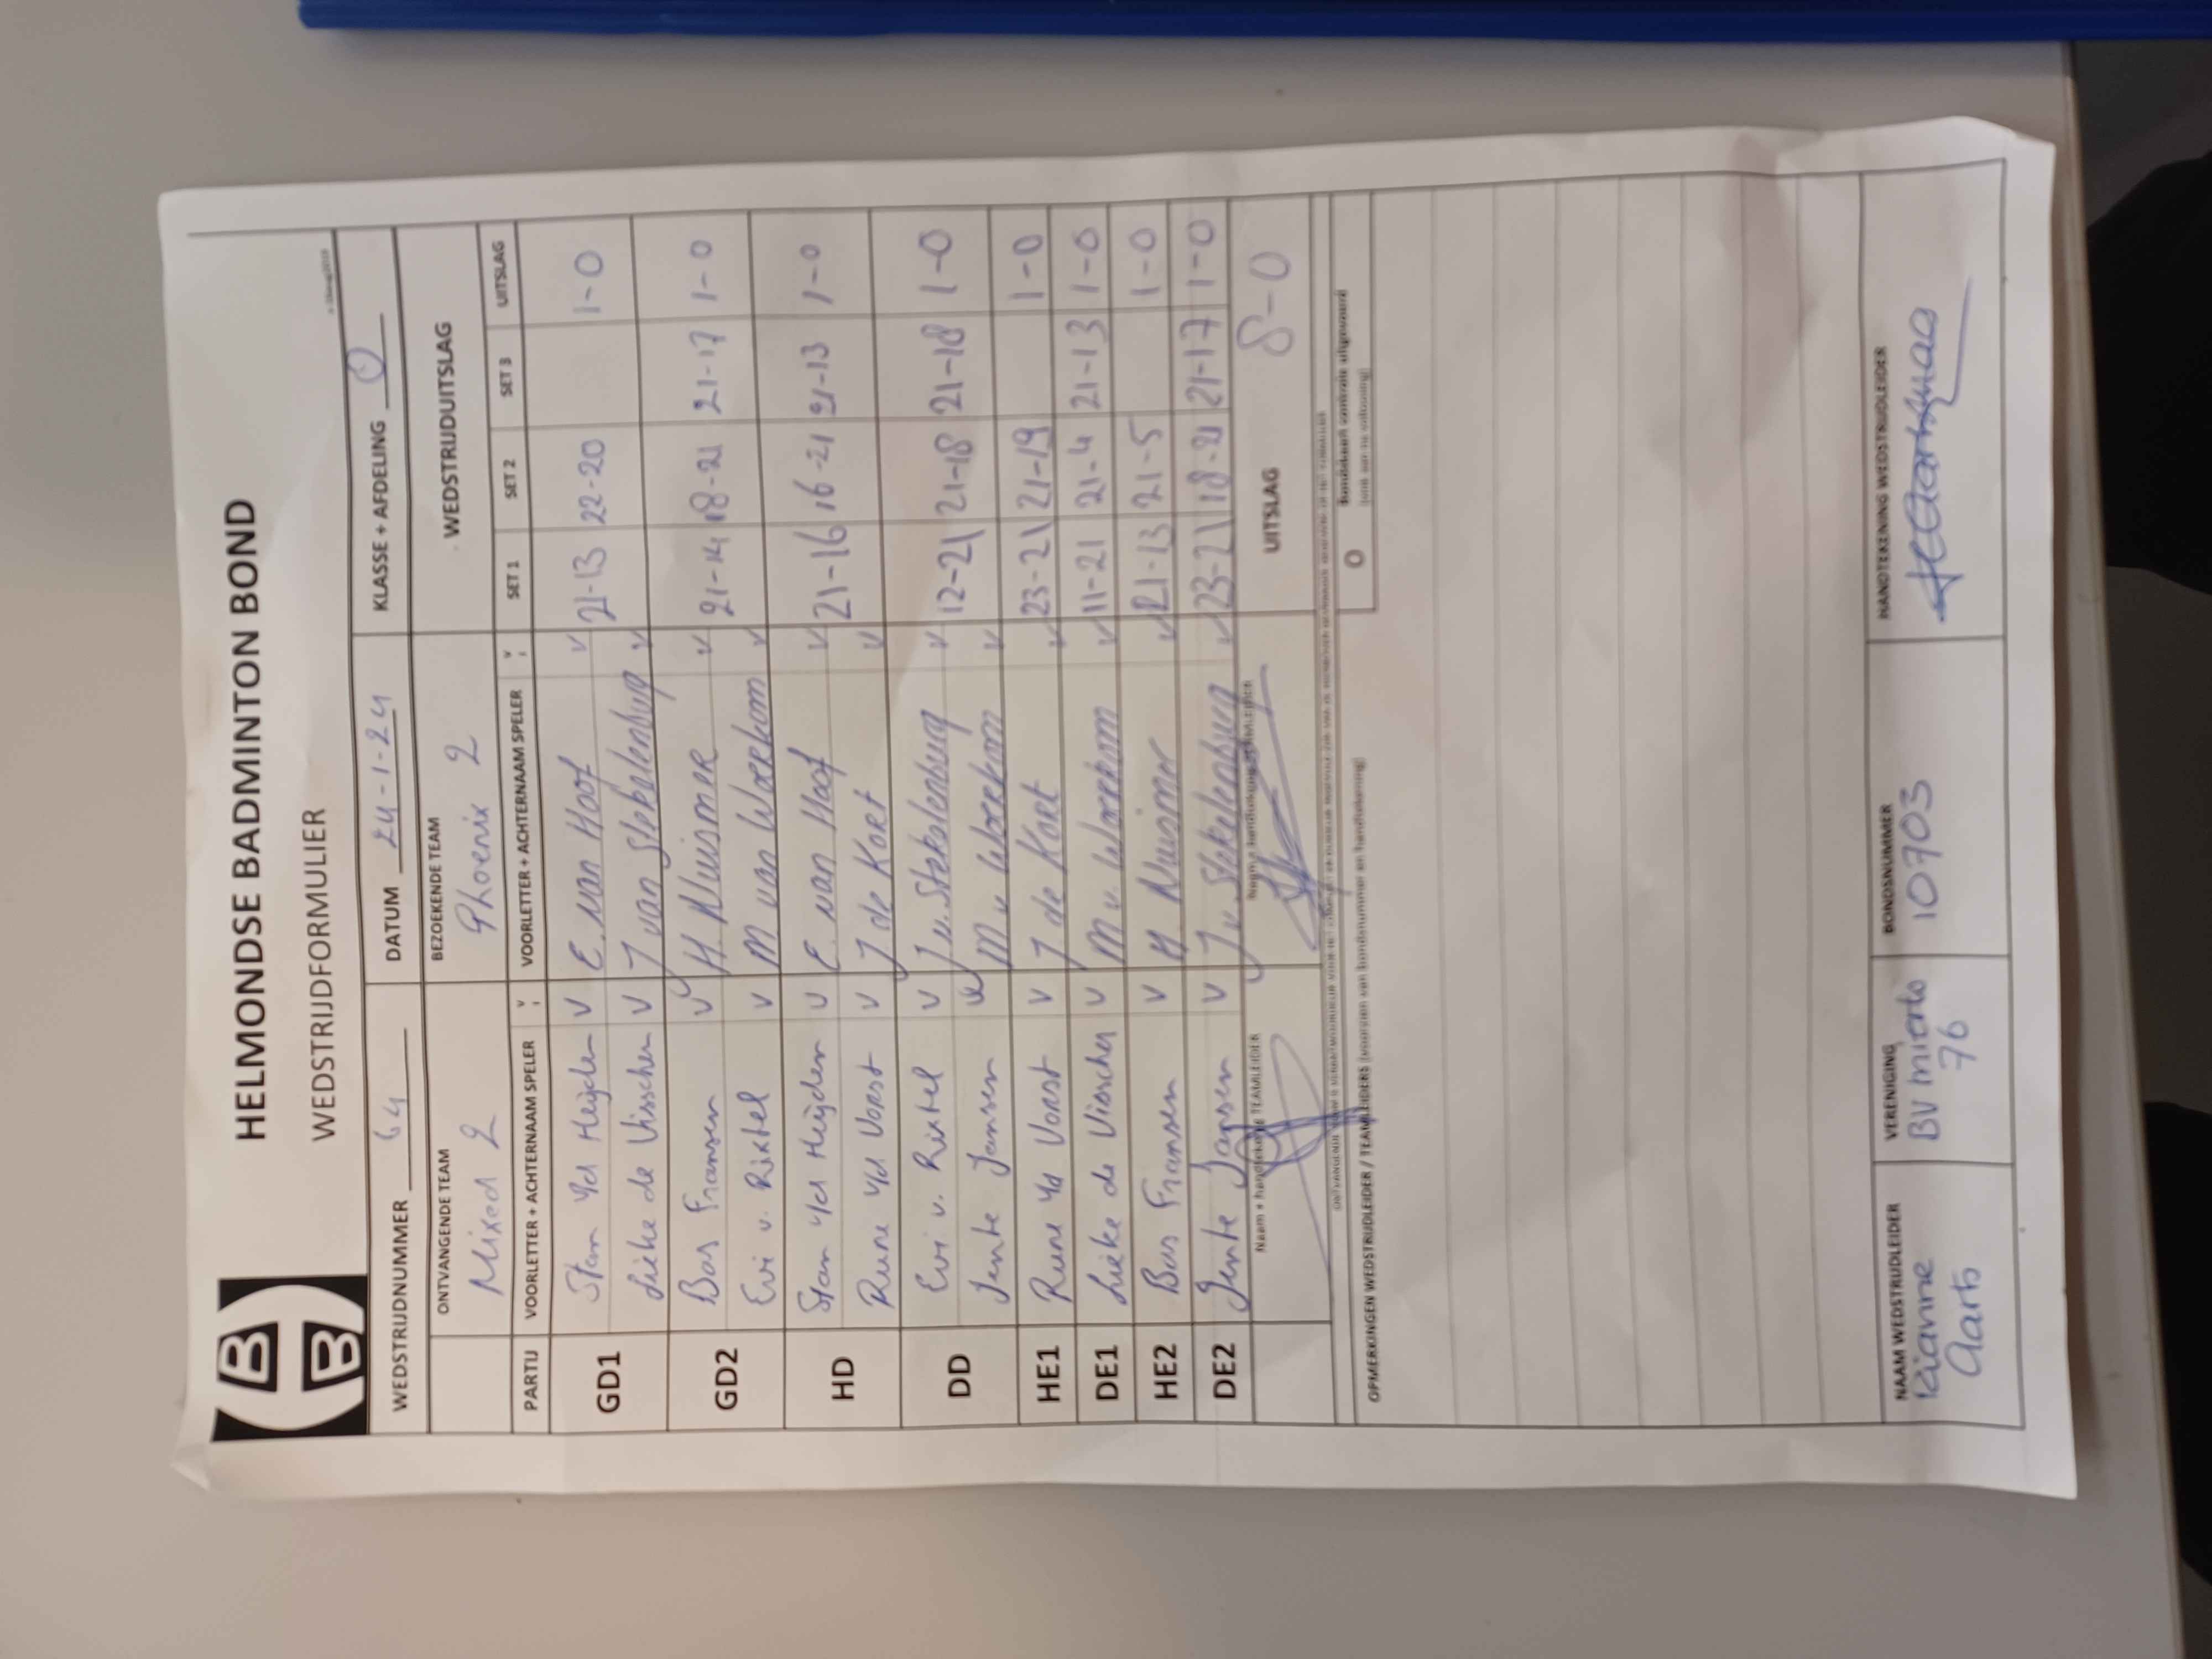 HELMONDSE BADMINTON BOND
WEDSTRIJDFORMULIER
WEDSTRIJDNUMMER 64 DATUM 24-1-24 KLASSE + AFDELING
ONTVANGENDE TEAM BEZOEKENDE TEAM WEDSTRIJDUITSLAG
Mixed 2 Phoenix 2
PARTIJ VOORLETTER + ACHTERNAAM SPELER V VOORLETTER + ACHTERNAAM SPELER V SET 1 SET 2 SET 3 UITSLAG
GD1 Stan v/d Heijden V E. van Hoof V 21-13 22-20 1-0
Lieke de Visscher V J van Stekelenburg V
GD2 Bas Fransen V H. Kluismer V 21-14 18-21 21-17 1-0
Evi v. Rixtel V M van Woerkom V
HD Stan v/d Heijden V E. van Hoof V 21-16 16-21 21-13 1-0
Rune v/d Vorst V J de Kort V
DD Evi v. Rixtel V J v. Stekelenburg V 12-21 21-18 21-18 1-0
Jente Jansen V M v Woerkom V
HE1 Rune v/d Vorst V J de Kort V 23-21 21-19 1-0
DE1 Lieke de Visscher V M v. Woerkom V 11-21 21-4 21-13 1-0
HE2 Bas Fransen V H. Kluismer V 21-13 21-5 1-0
DE2 Jente Jansen V J v. Stekelenburg V 23-21 18-21 21-17 1-0
Naam + handtekening TEAMLEIDER Naam + handtekening TEAMLEIDER UITSLAG 8-0
O Bondskaart controle uitgevoerd
OPMERKINGEN WEDSTRIJDLEIDER / TEAMLEIDERS (voorzien van bondsnummer en handtekening)
NAAM WEDSTRIJDLEIDER VERENIGING BONDSNUMMER HANDTEKENING WEDSTRIJDLEIDER
Rianne BV mierlo 10703
Aarts 76